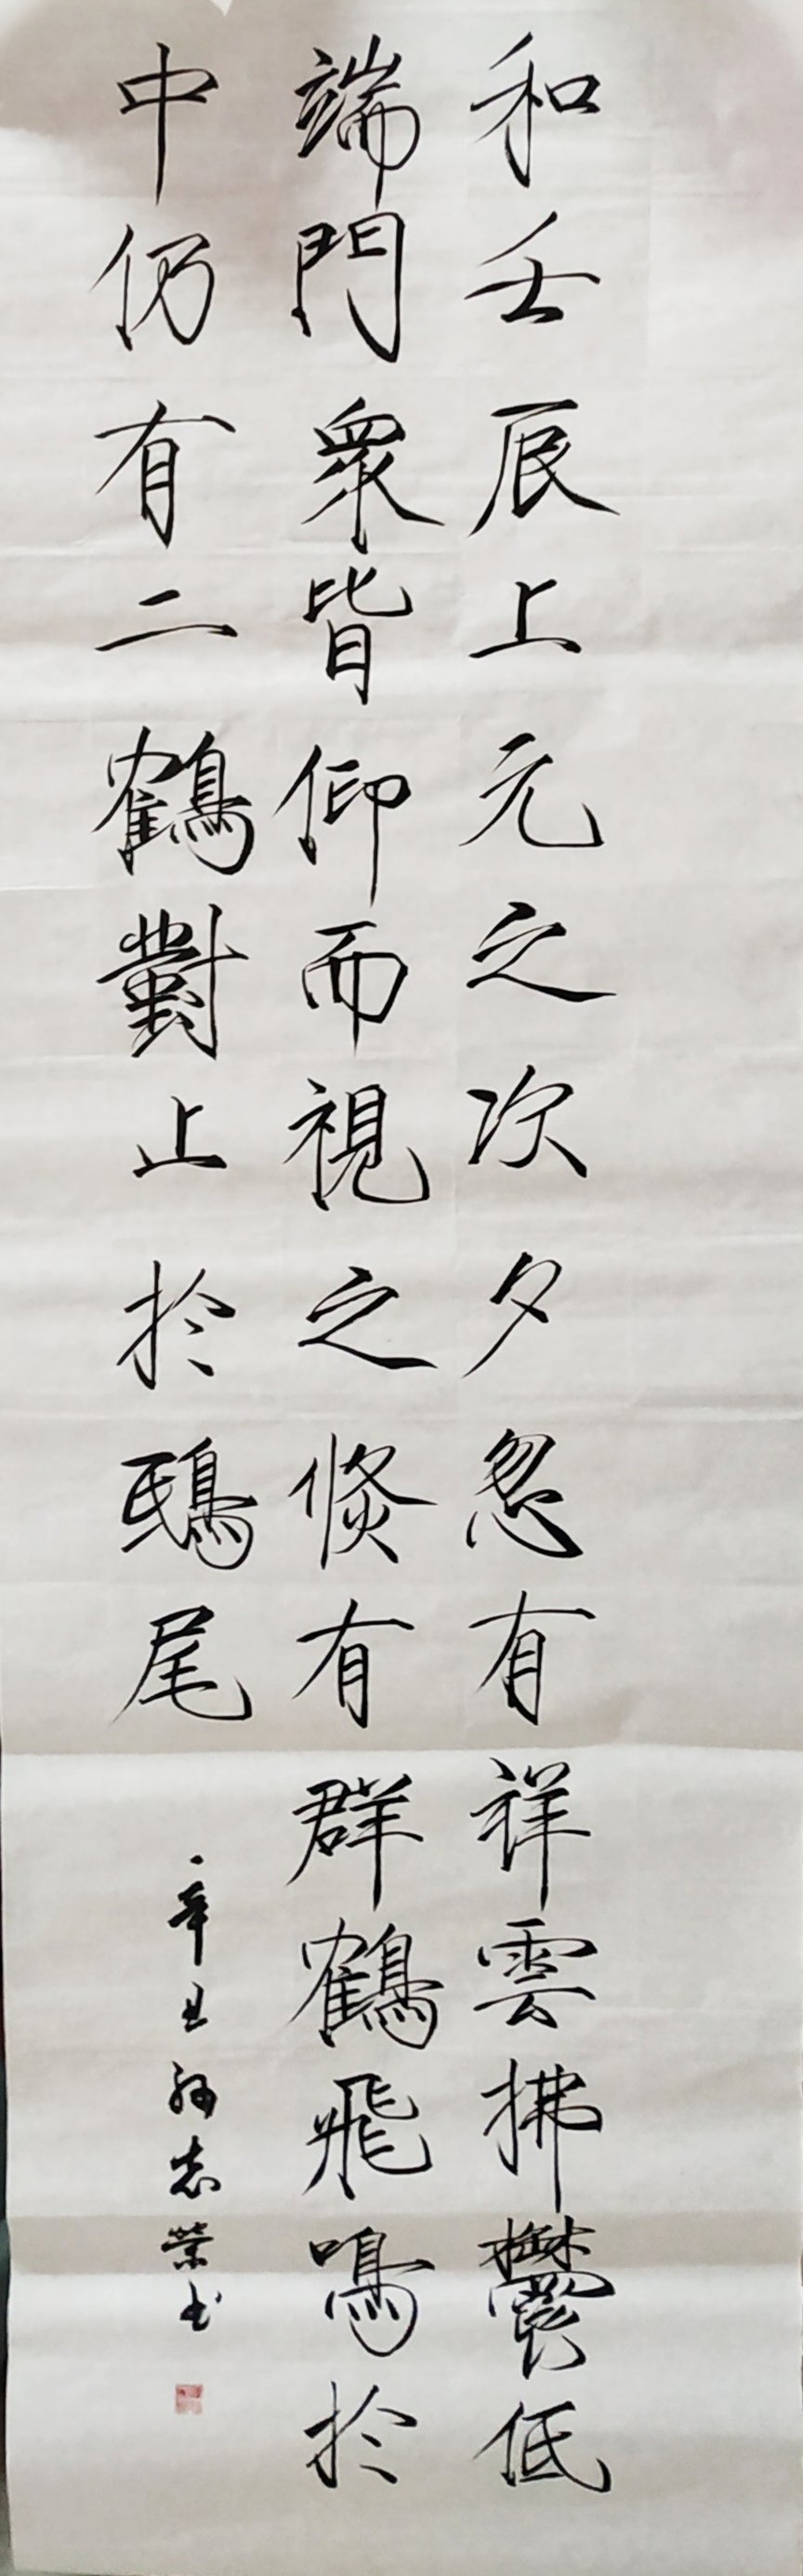 和壬辰上元之次夕忽有祥雲拂鬱低
端門衆皆仰而視之倐有群鶴飛鳴於
中仍有二鶴對止於鴟尾
辛丑孫志榮书